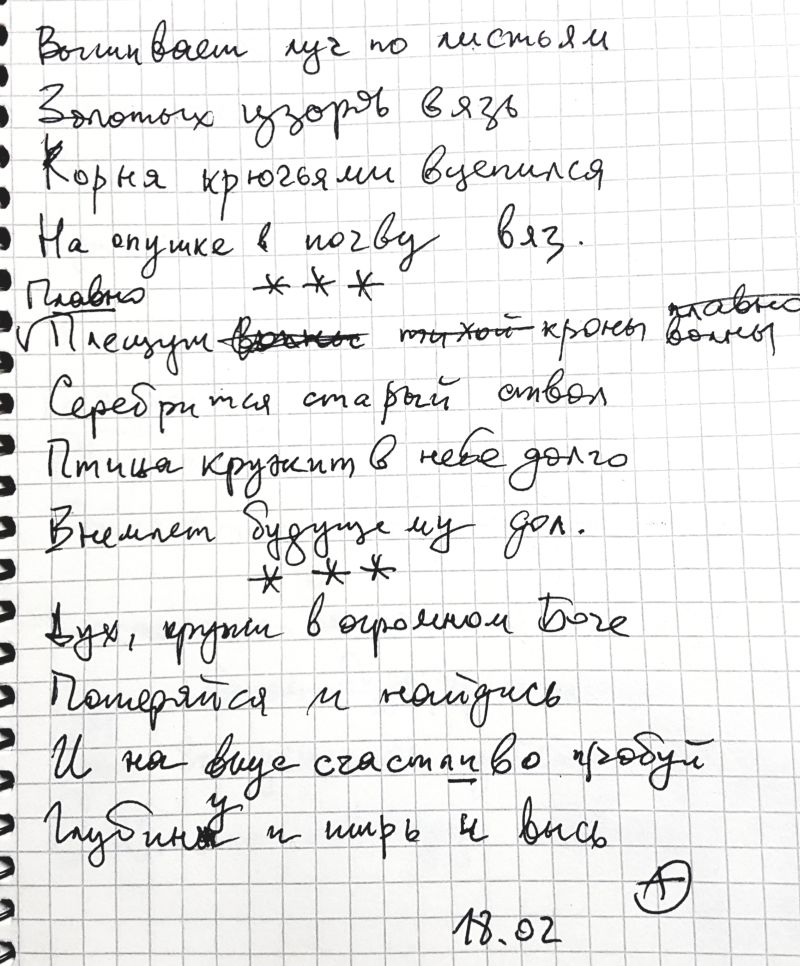 Вышивает луч по листьям
Золотых узоров вязь
Корня крючьями вцепился
На опушке в почву вяз.
* * *
Плавно
Плещут волны тихой кроны плавно волны
Серебрится старый ствол
Птица кружит в небе долго
Внемлет будущему дол.
* * *
Дух, кружи в огромном Боге
Потеряйся и найдись
И на вкус счастливо пробуй
Глубину и ширь и высь
А
18.02